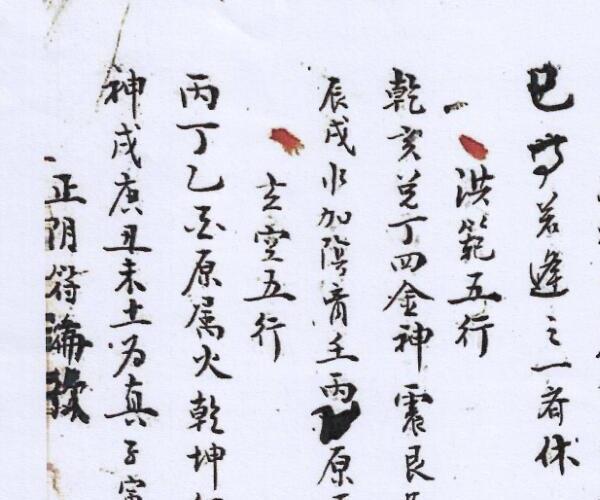 巳若逢之一齊休
洪範五行
乾亥兌丁四金神震艮
辰戌水加陰壬丙原
玄空五行
丙丁乙酉原属火乾坤
神戌庚丑未土为真子寅
正阴符